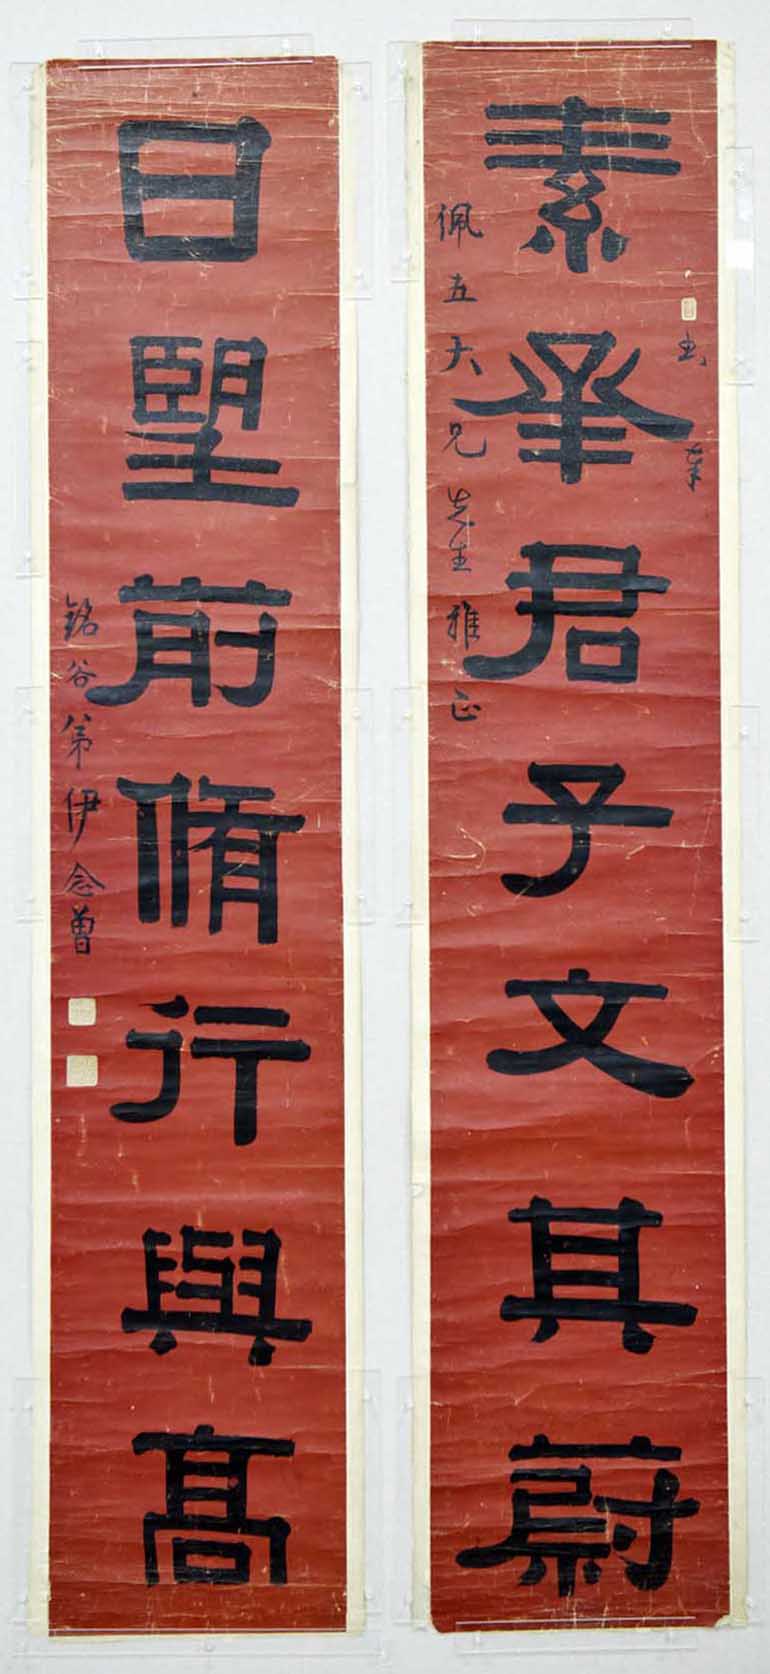 素承君子文其蔚
佩五大兄先生雅正
日朢前脩行與髙
銘谷弟伊念曾